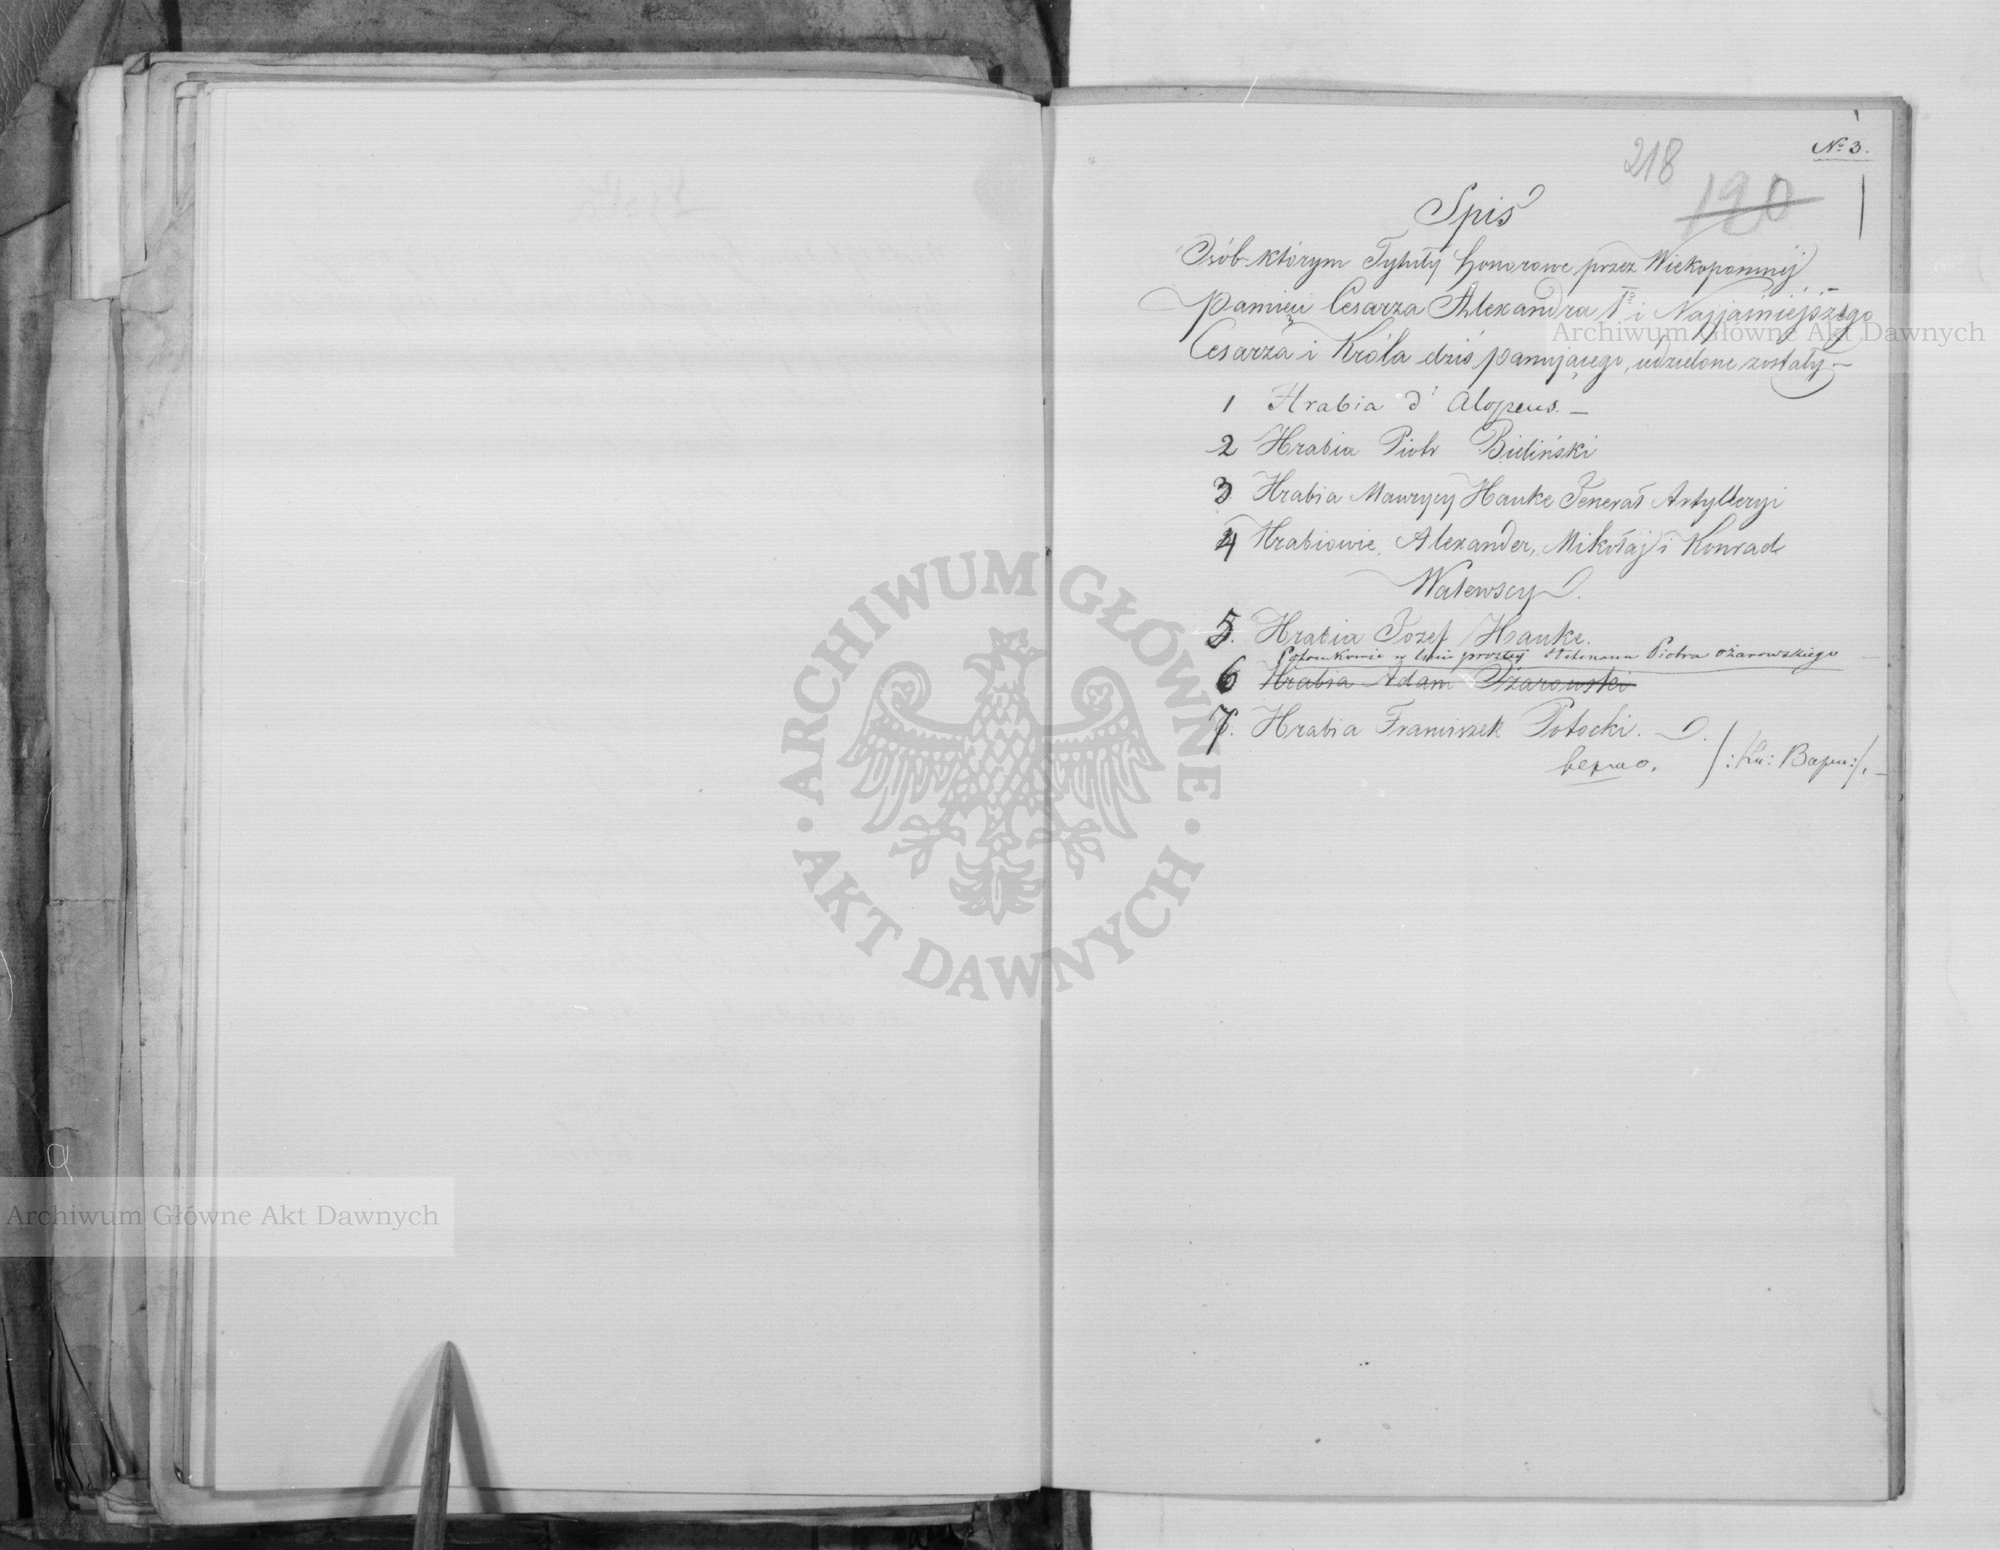 № 3.
218
190
Spis
Osób którym Tytuły honorowe przez Wiekopomnéj
Pamięci Cesarza Alexandra Iº i Najjaśniejszego
Cesarza i Króla dziś panującego, udzielone zostały —
1 Hrabia d'Alopeus. —
2 Hrabia Piotr Bieliński
3 Hrabia Maurycy Hauke Jenerał Artylleryi
4 Hrabiowie Alexander, Mikołaj i Konrad
Walewscy.
5. Hrabia Jozef Hauke.
Potomkowie w linii prostej Hetmana Piotra Ożarowskiego
6 Hrabia Adam Ożarowski
7. Hrabia Franciszek Potocki.
верно.
ARCHIWUM GŁÓWNE AKT DAWNYCH
Archiwum Główne Akt Dawnych
Archiwum Główne Akt Dawnych